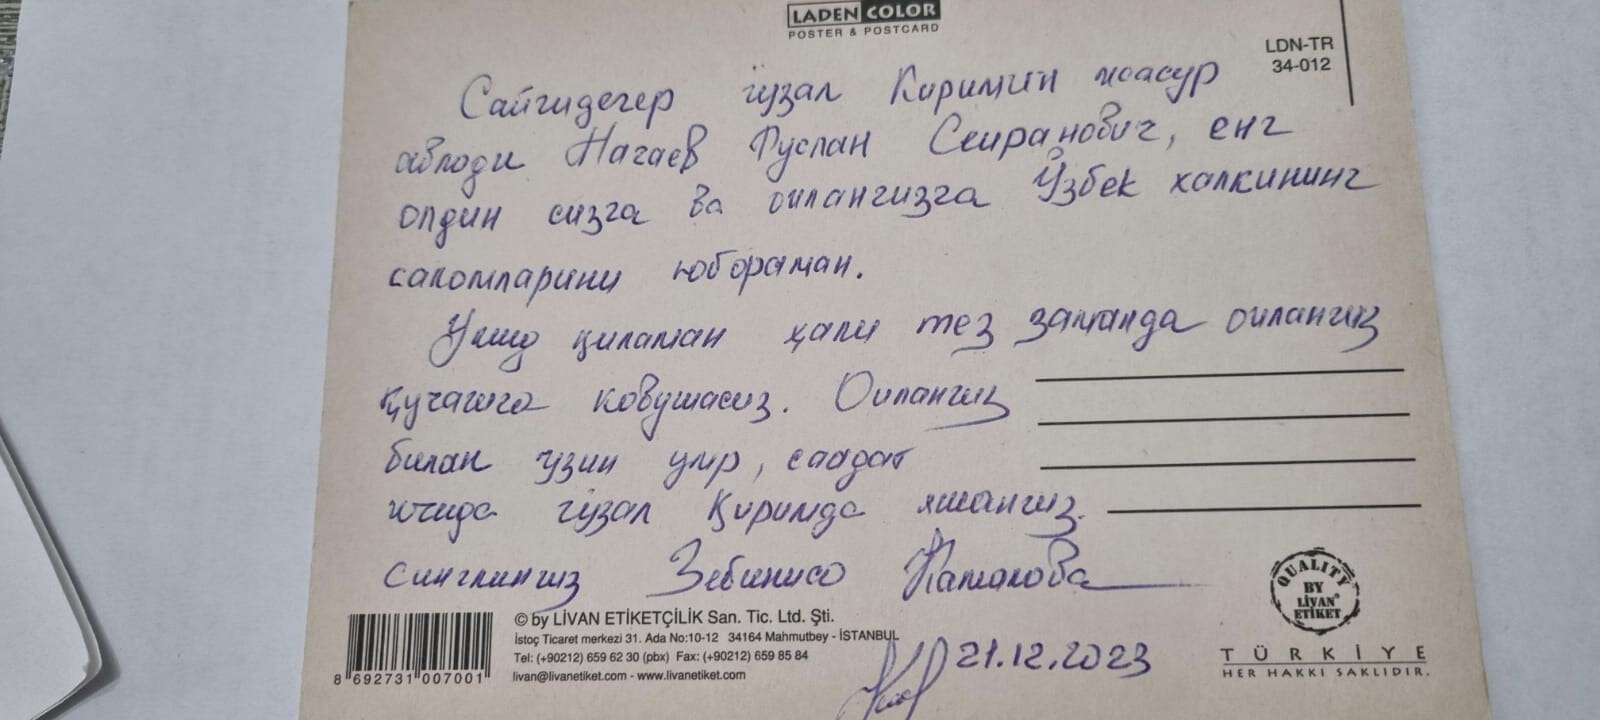 LADEN COLOR
POSTER & POSTCARD
LDN-TR
34-012
Сайгидегер гузал Киримин жасур
авлоди Нагаев Руслан Сеиранович, енг
олдин сизга ва оилангизга Ўзбек халкининг
саломларини юбораман.
Умид қиламан ҳали тез заманда оилангиз
қучагига ковушасиз. Оилангиз
билан узин умр, саадат
ичида гузал Қиримда яшангиз.
синглингиз Зебинисо
21.12.2023
© by LİVAN ETİKETÇİLİK San. Tic. Ltd. Şti.
İstoç Ticaret merkezi 31. Ada No:10-12 34164 Mahmutbey - İSTANBUL
Tel: (+90212) 659 62 30 (pbx) Fax: (+90212) 659 85 84
livan@livanetiket.com - www.livanetiket.com
8 692731 007001
QUALITY
BY
LİVAN
ETİKET
TÜRKİYE
HER HAKKI SAKLIDIR.